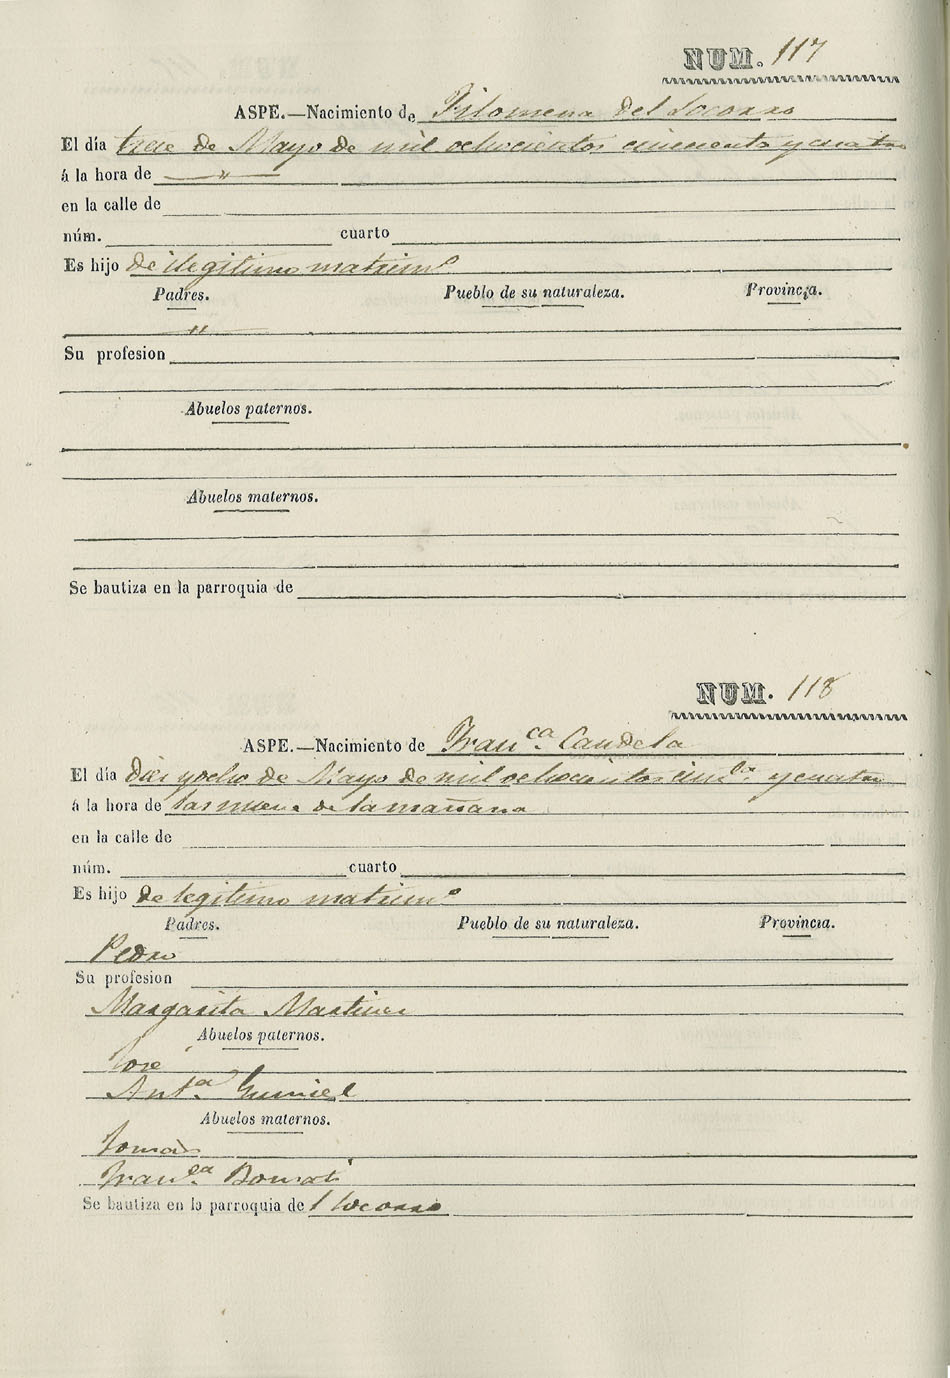 NUM. 117
ASPE.—Nacimiento de Filomena del Socorro
El día trece de Mayo de mil ochocientos cincuenta y cuatro
á la hora de — " —
en la calle de
núm. cuarto
Es hijo de ilegitimo matrimº
Padres. Pueblo de su naturaleza. Provincia.
— " —
Su profesion
Abuelos paternos.
Abuelos maternos.
Se bautiza en la parroquia de
NUM. 118
ASPE.—Nacimiento de Franca. Candela
El día diez y ocho de Mayo de mil ochocientos cincta. y cuatro
á la hora de las nueve de la mañana
en la calle de
núm. cuarto
Es hijo de legitimo matrimº
Padres. Pueblo de su naturaleza. Provincia.
Pedro
Su profesion
Margarita Martinez
Abuelos paternos.
José
Anta.
Abuelos maternos.
Tomás
Franca.
Se bautiza en la parroquia de l Socorro